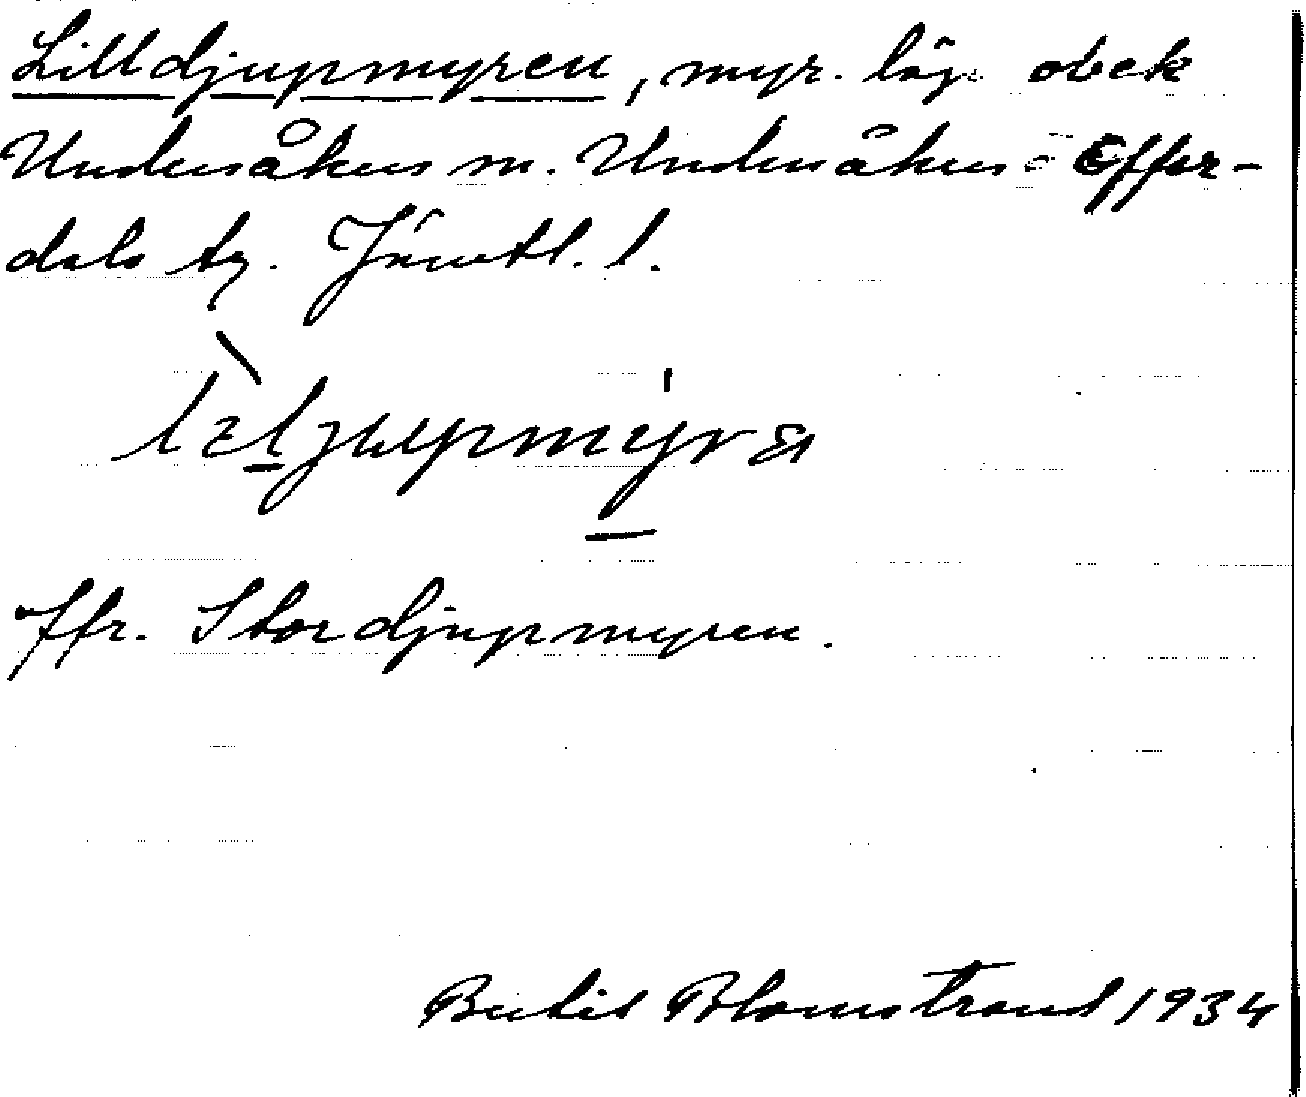 Lilldjupmyren, myr. läg. obek
Undersåkers sn. Undersåkers o Offer-
dals tg. Jämtl. l.
Jfr. Stordjupmyren.
Bertil Blomstrand 1934